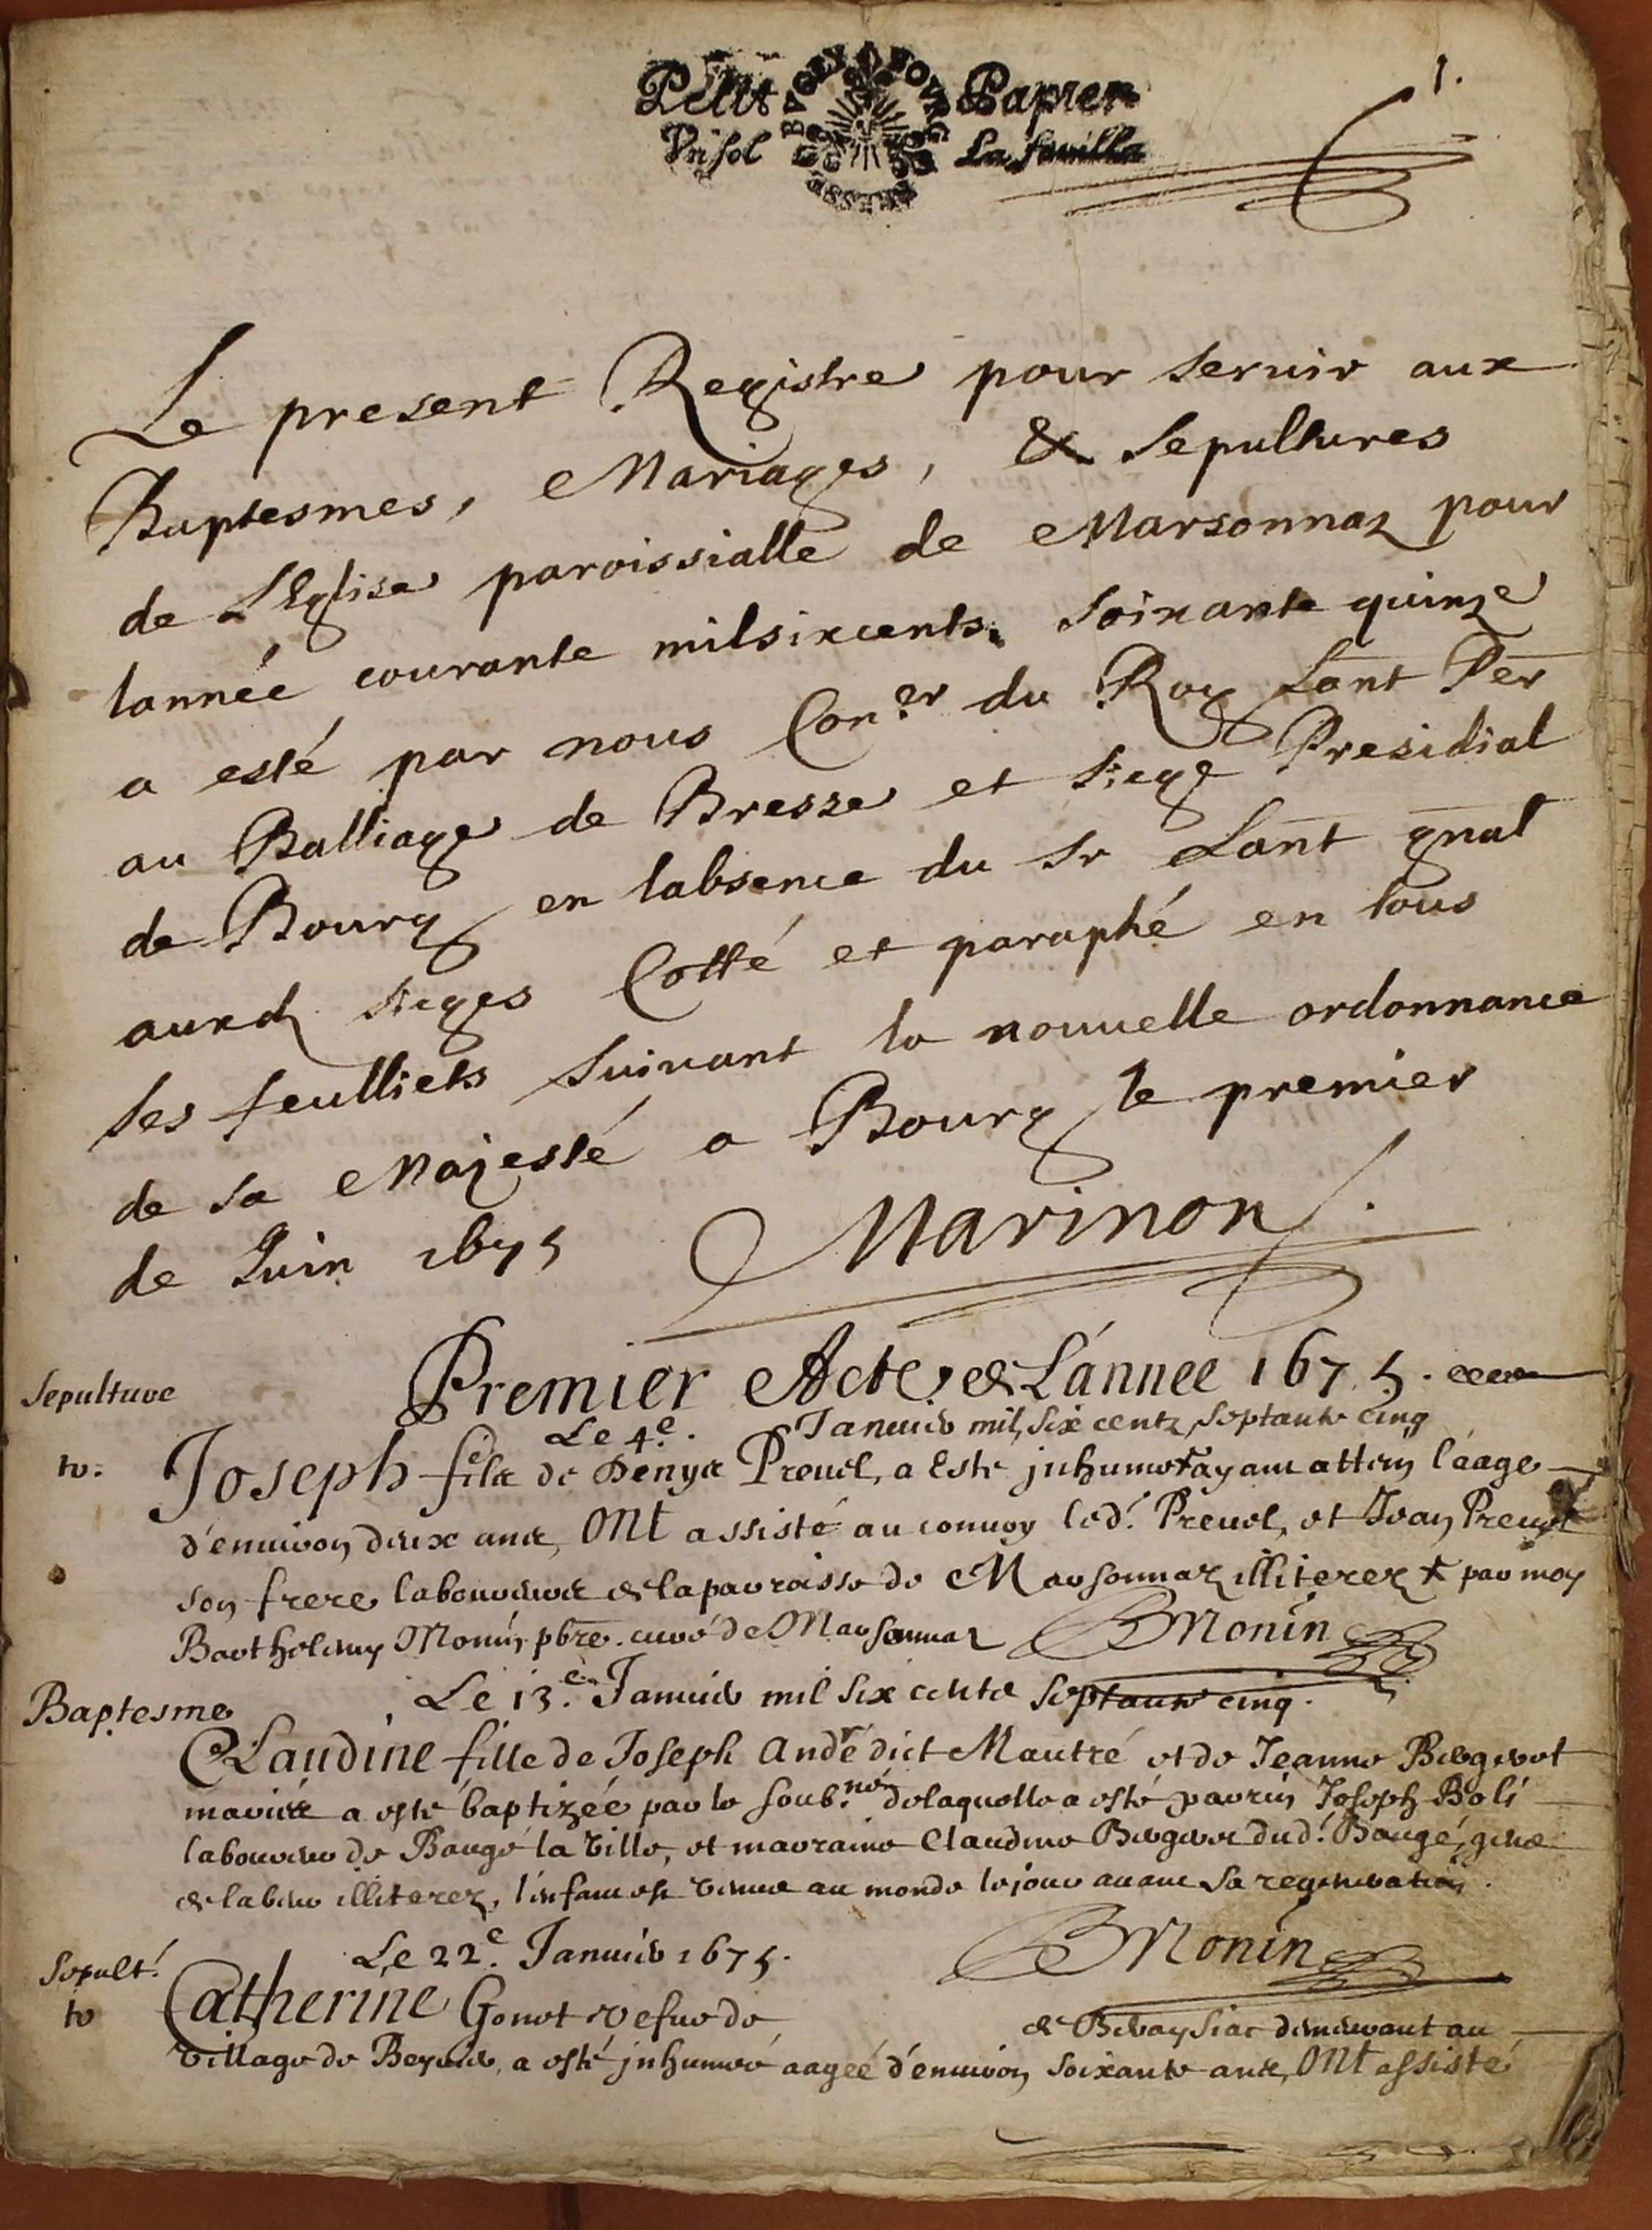 Petit Papier
Vn sol La feuille
1.
Le present Registre pour seruir aux
Baptesmes, Mariages, & sepultures
de L'Eglise paroissialle de Marsonnaz pour
lannée courante milsixcents soixante quinze
a esté par nous Con.er du Roy Lant Per
au Balliage de Bresse et siege Presidial
de Bourg en labsence du sr Lant gnal
auxd sieges Cotté et paraphé en tous
ses feulliets suiuant la nouuelle ordonnance
de sa Majesté a Bourg le premier
de Juin 1675 Marinon
Sepulture Premier Acte de L'annee 1675.
Le 4.e Januier mil six centz septante cinq
to: Joseph filz de Denys Preuel, a Este jnhumé ayant attein l'aage
d'enuiron deux ans, ont assisté au conuoy led.' Preuel, et Jean Preuel
son frere laboureurs de la parroisse de Marsonnaz illiterez par moy
Barthelemy Monin pbre. curé de Marsonnaz BMonin
Baptesme Le 13.e Januier mil six cents septante cinq.
Claudine fille de Joseph André dict Mautré et de Jeanne Bergerot
mariés a esté baptizée par le soub.né de laquelle a esté parrin Joseph Boli
laboureur de Baugé la ville, et marraine Claudine Bergerot dud.' Baugé, gens
de labeur illiterez, l'enfant est venue au monde le jour auant sa regeneration.
BMonin
Sepult.' Le 22.e Januier 1675.
to Catherine Gonot vefue de de Beraysiat demeurant au
village de Beyuier, a esté jnhumée aagée d'enuiron soixante ans, ont assisté